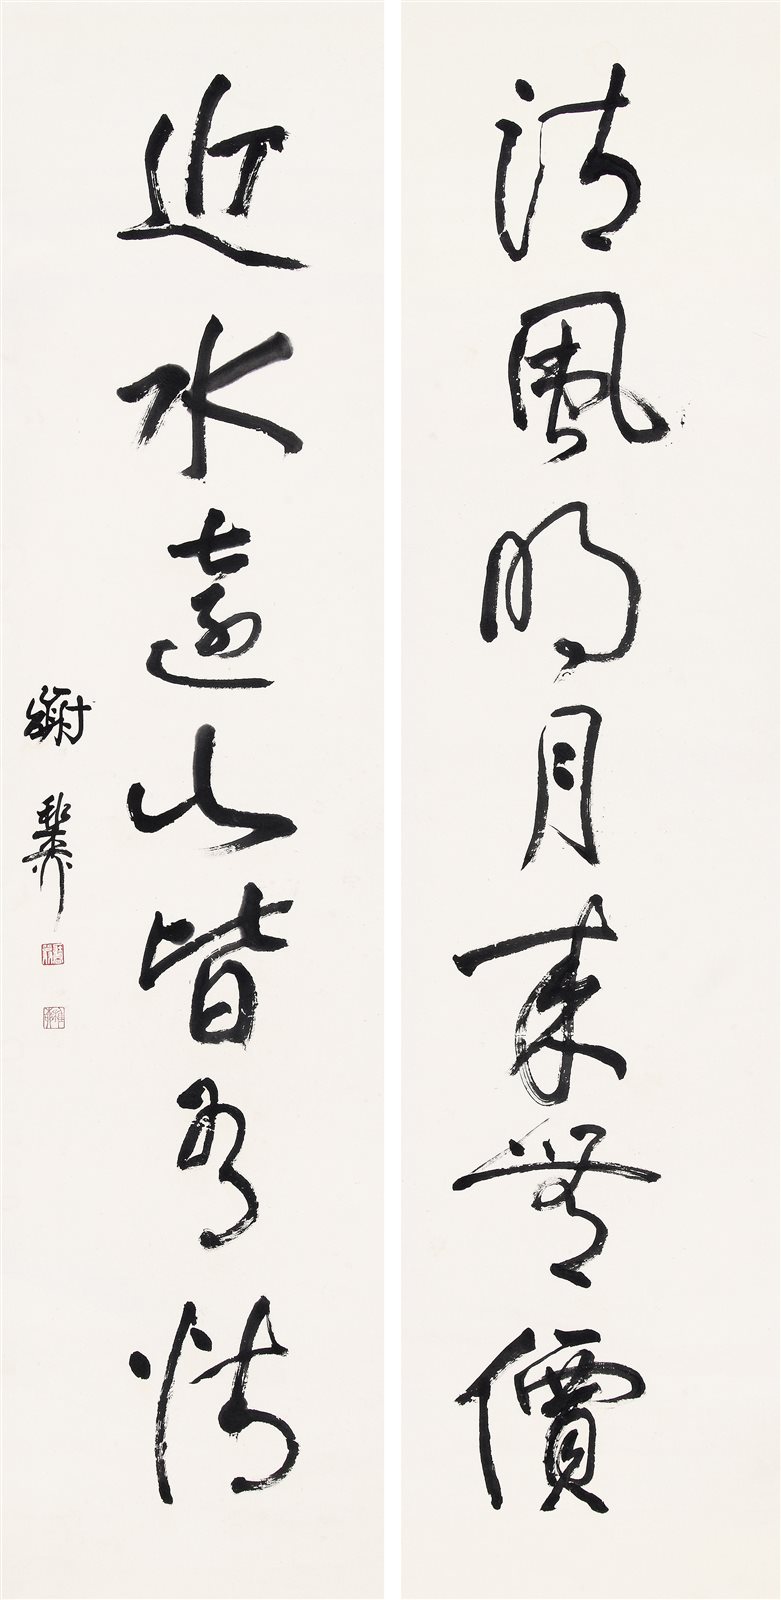 清風明月本無價
近水遠山皆有情
謝稚柳